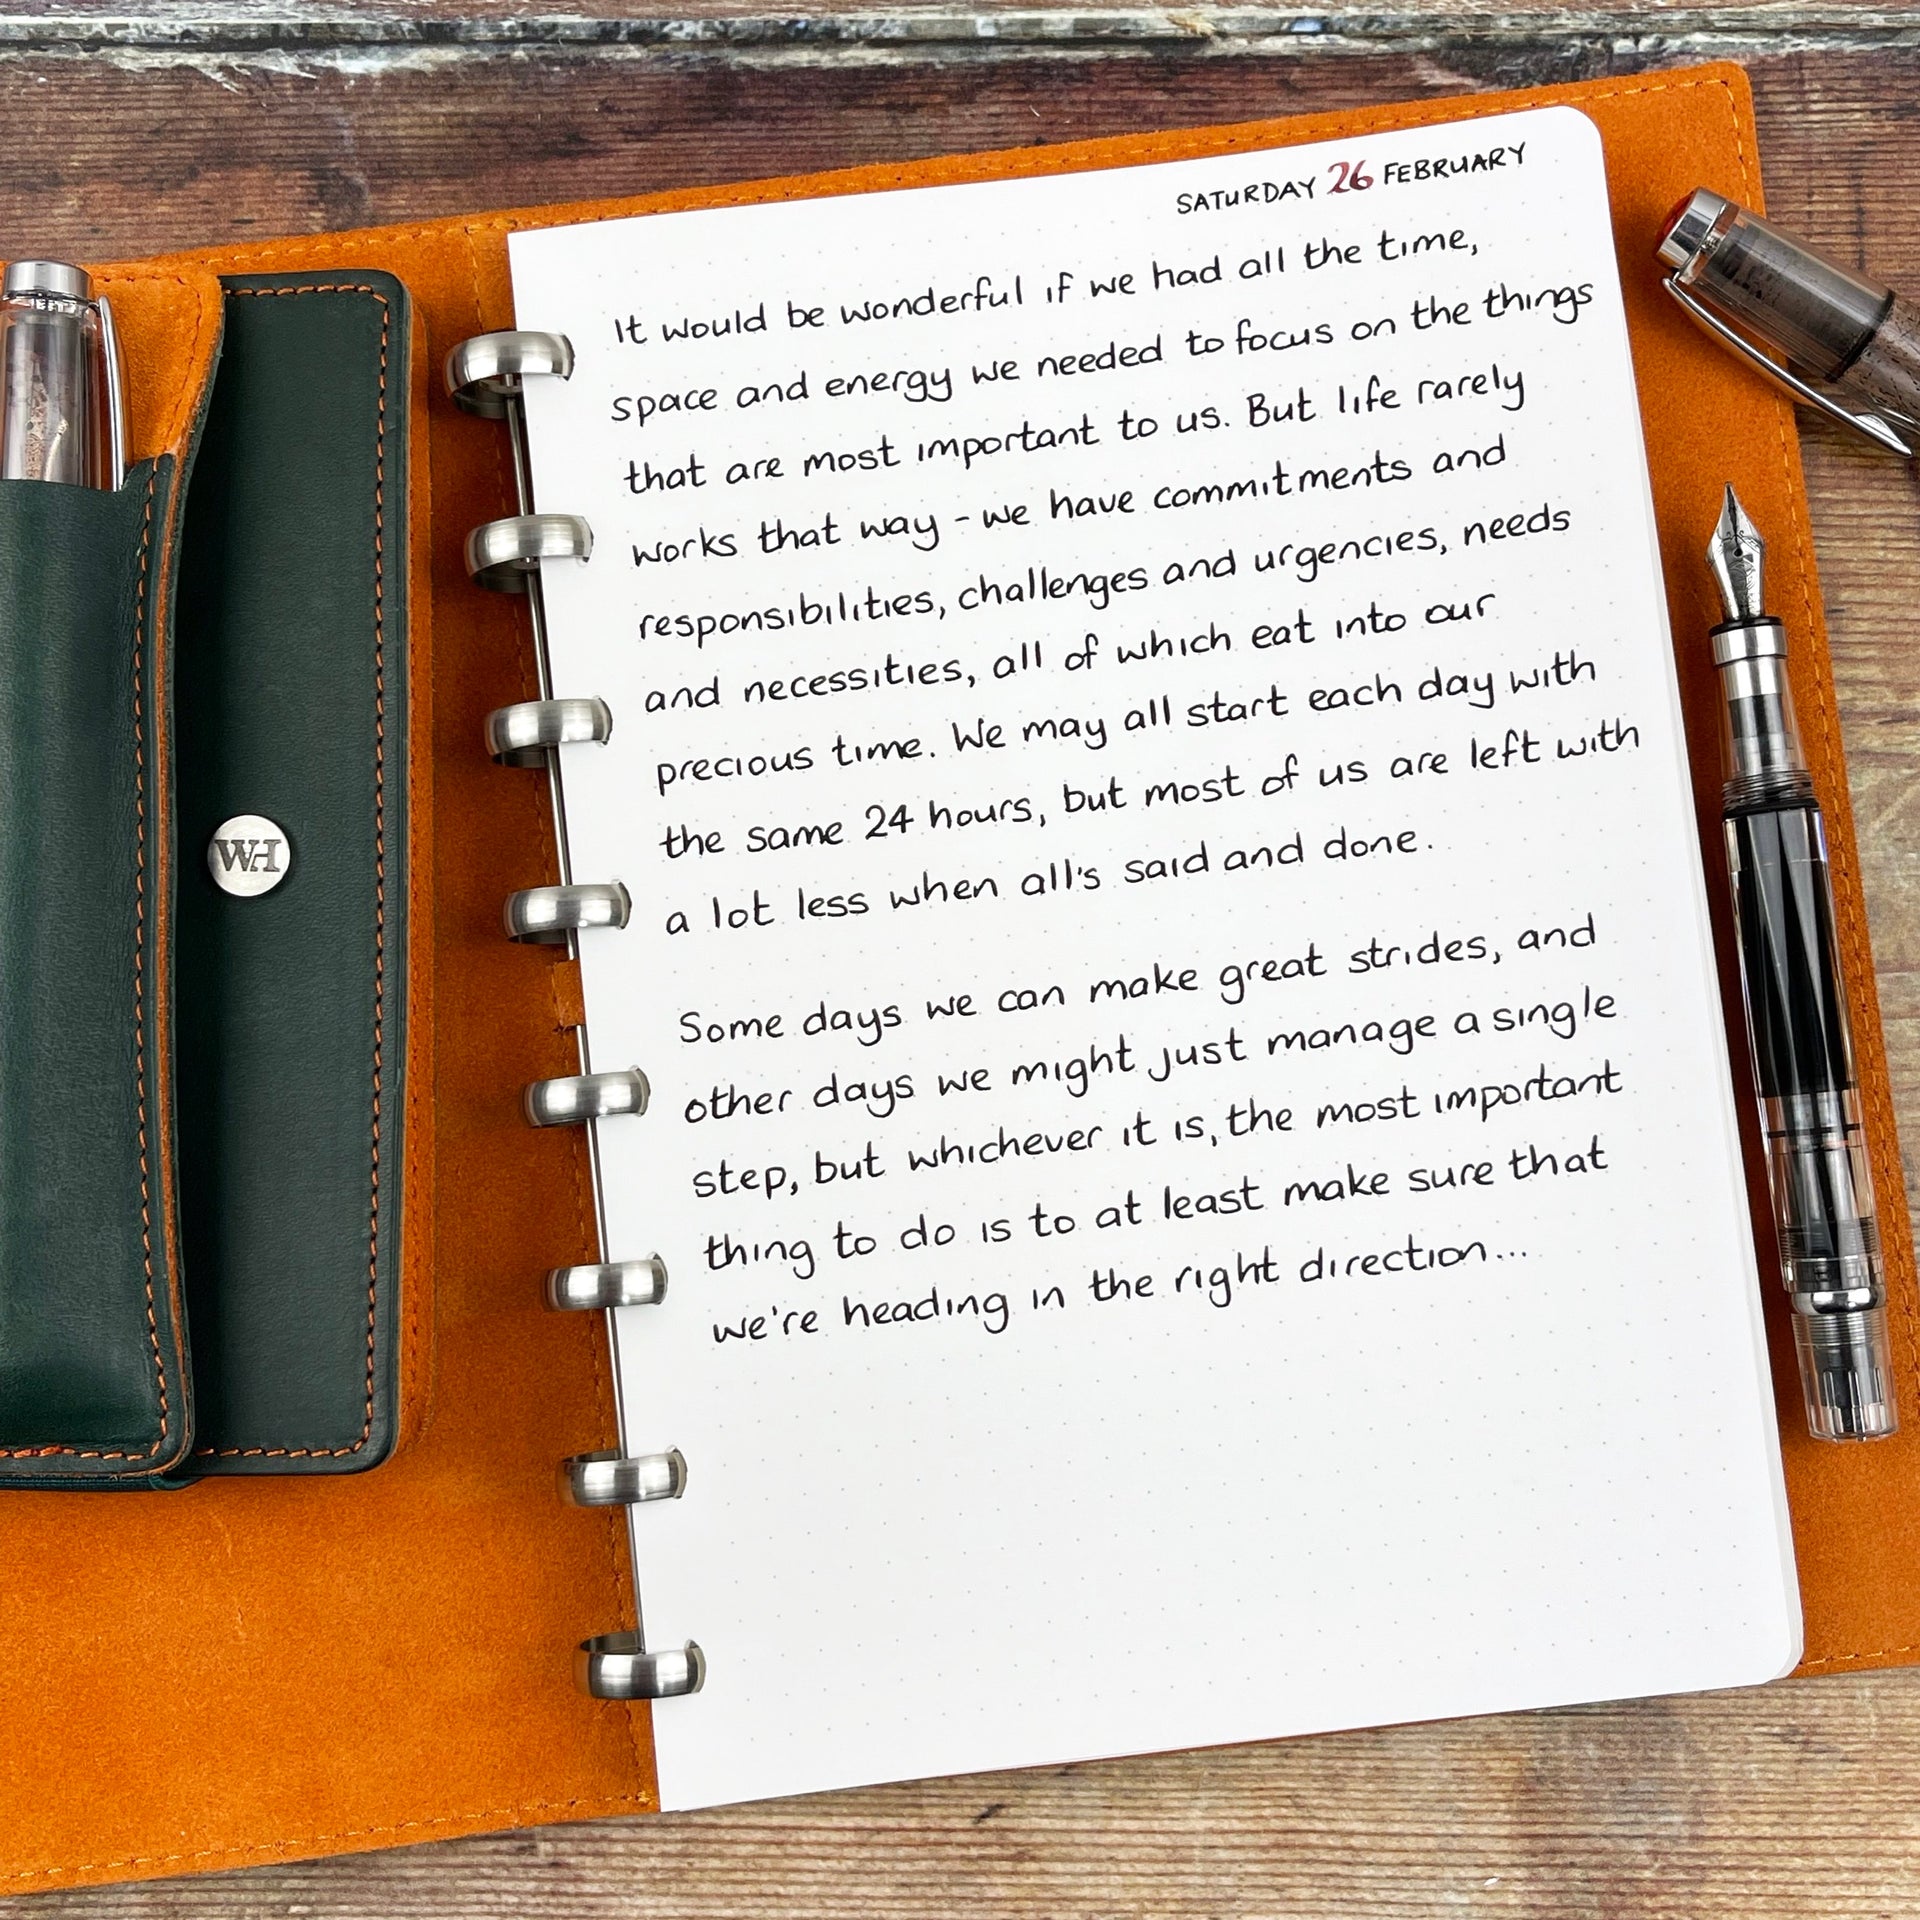 SATURDAY 26 FEBRUARY
It would be wonderful if we had all the time,
space and energy we needed to focus on the things
that are most important to us. But life rarely
works that way - we have commitments and
responsibilities, challenges and urgencies, needs
and necessities, all of which eat into our
precious time. We may all start each day with
the same 24 hours, but most of us are left with
a lot less when all's said and done.
Some days we can make great strides, and
other days we might just manage a single
step, but whichever it is, the most important
thing to do is to at least make sure that
we're heading in the right direction...
WH